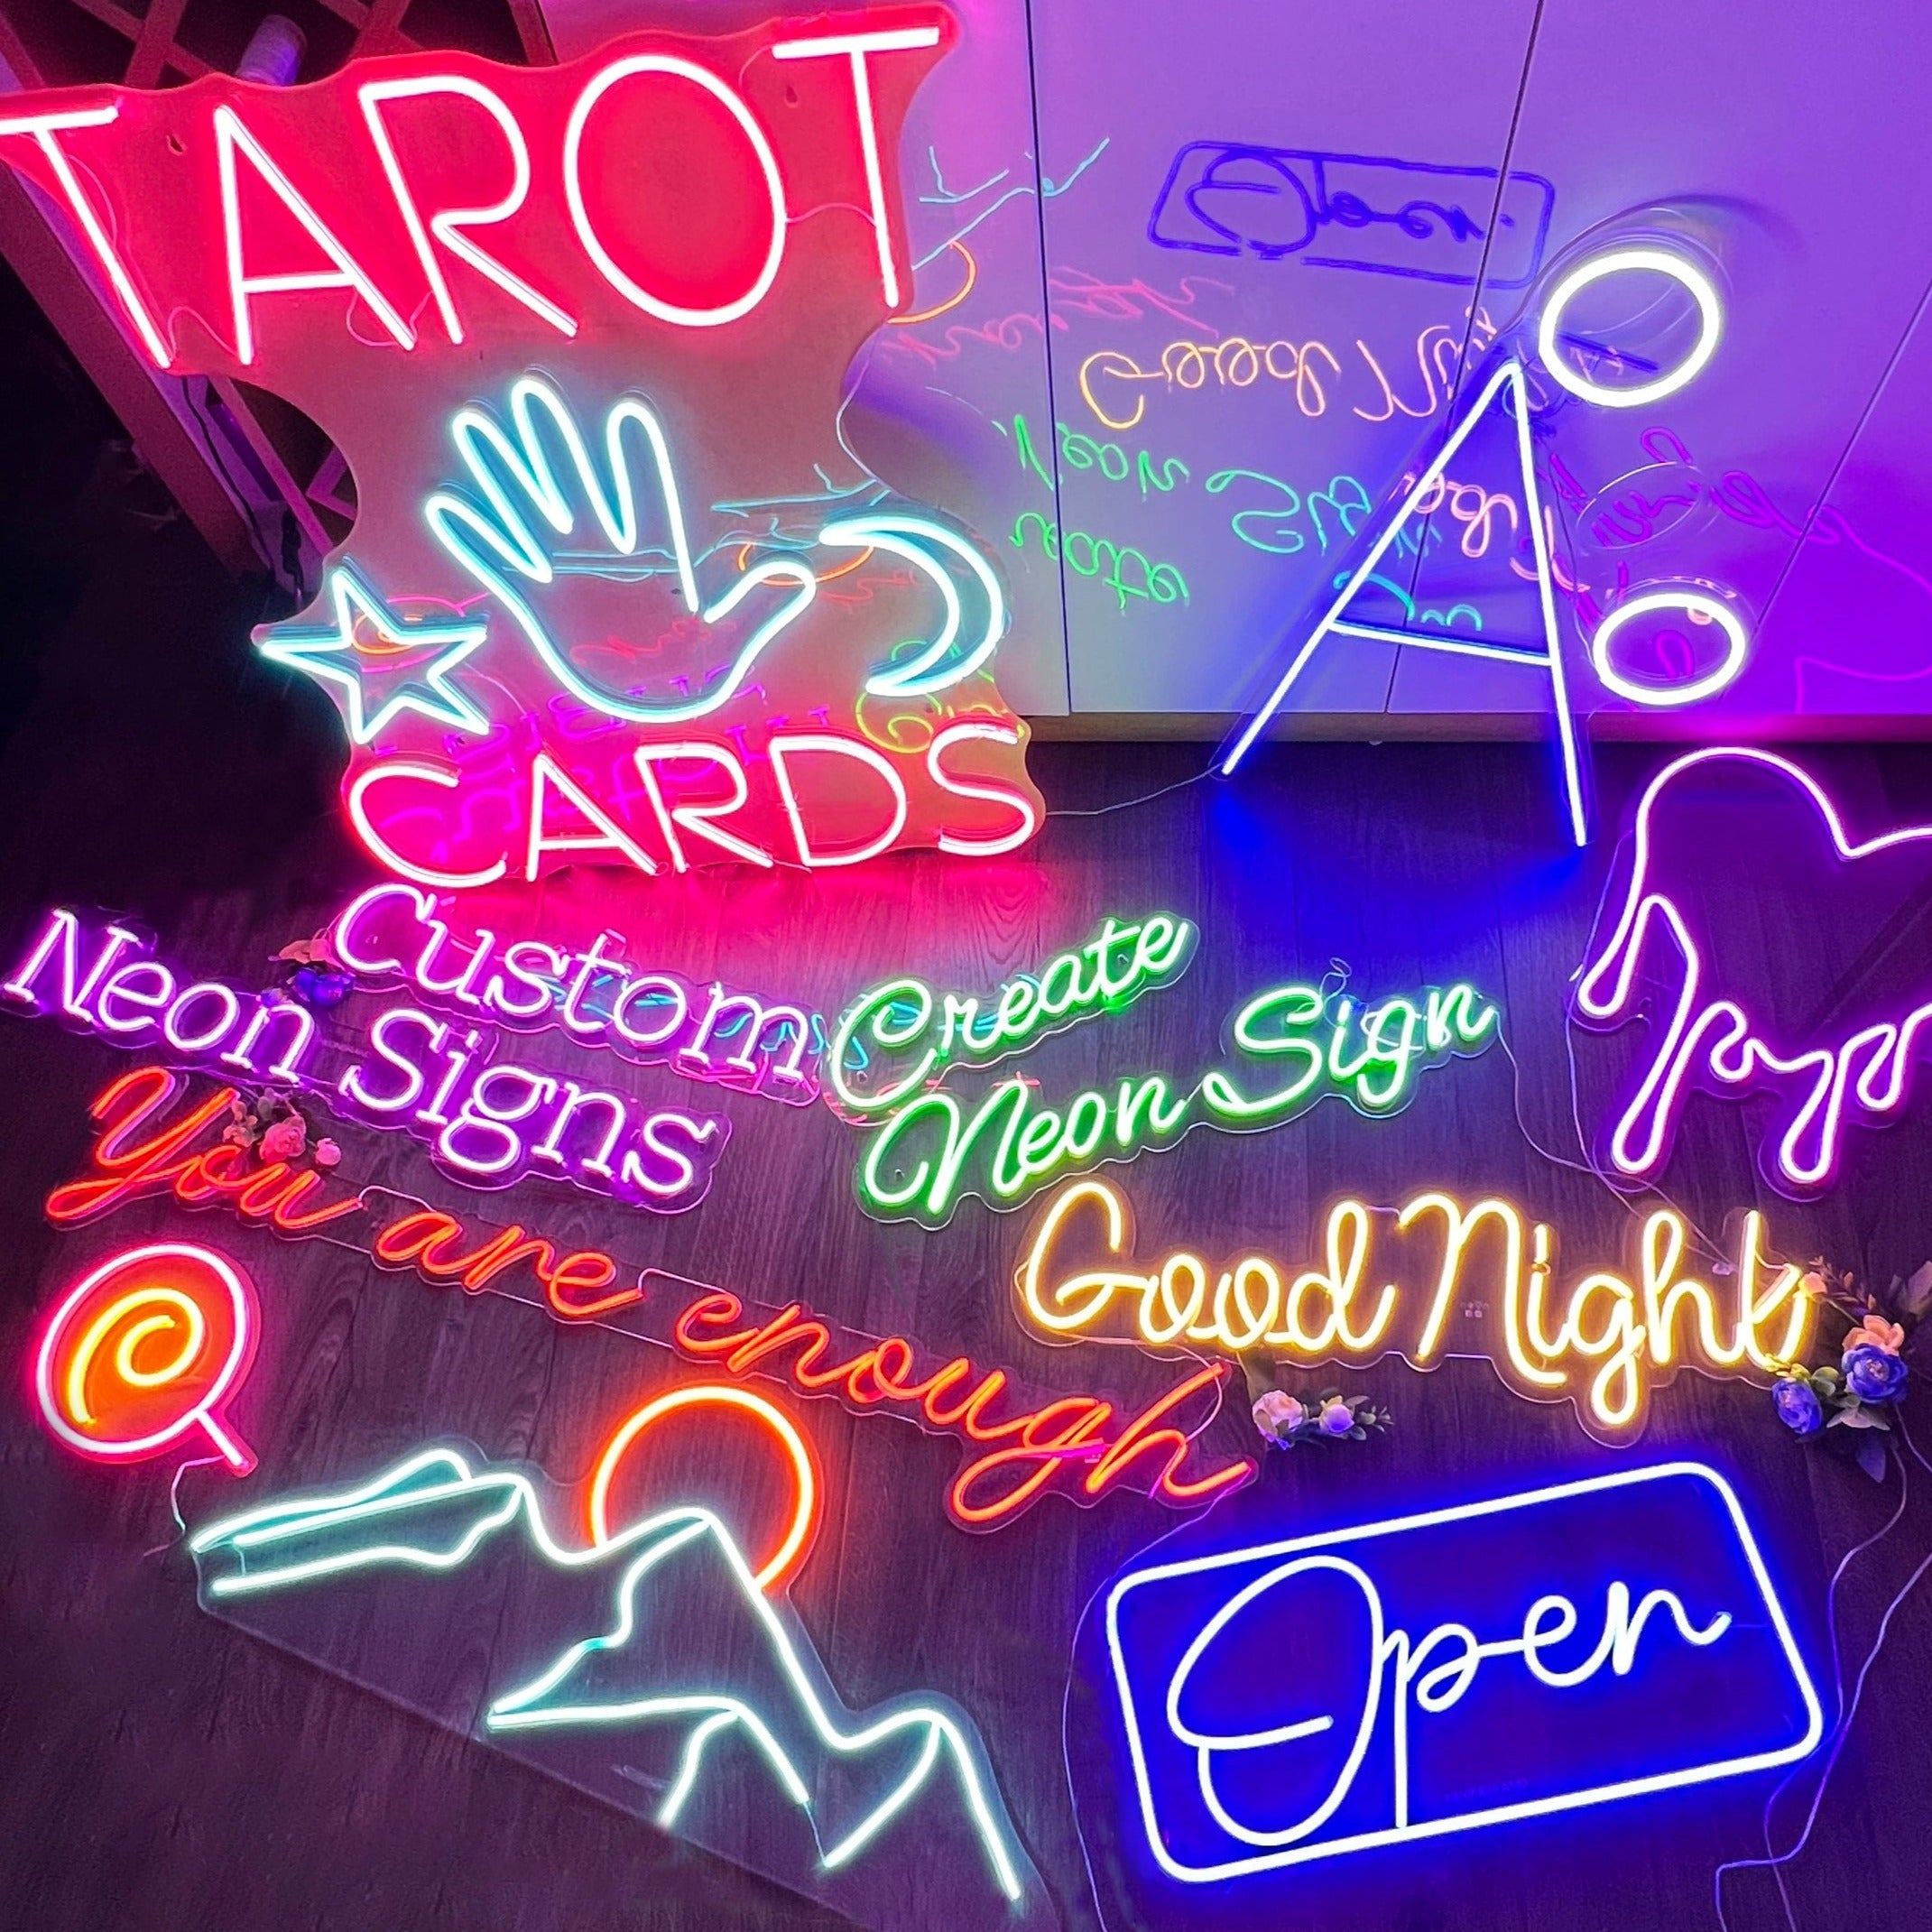 TAROT
CARDS
A
Custom
Neon Signs
Create
Neon Sign
You are enough
Good Night
Open